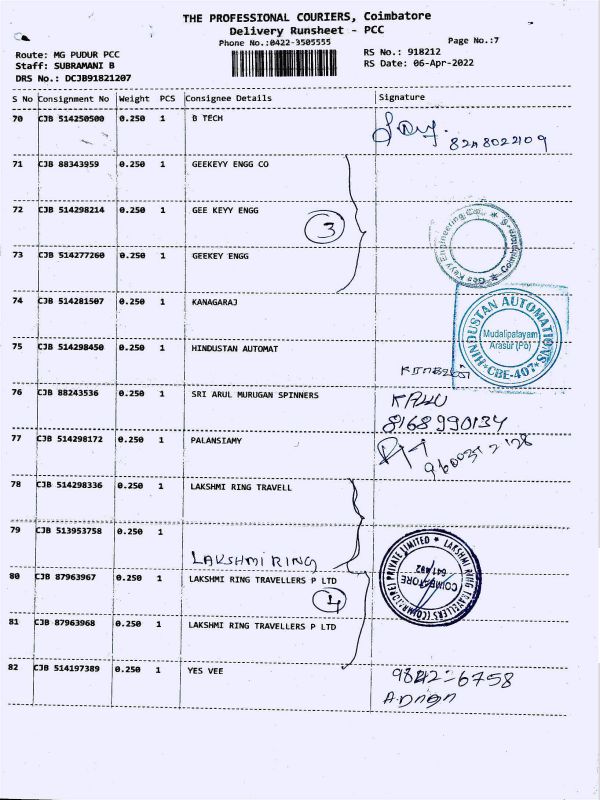 THE PROFESSIONAL COURIERS, Coimbatore
Delivery Runsheet - PCC
Phone No.:0422-3505555
Page No.:7
Route: MG PUDUR PCC
RS No.: 918212
Staff: SUBRAMANI B
RS Date: 06-Apr-2022
DRS No.: DCJB91821207
S No Consignment No Weight PCS Consignee Details Signature
70 CJB 514250500 0.250 1 B TECH
8248022109
71 CJB 88343959 0.250 1 GEEKEYY ENGG CO
72 CJB 514298214 0.250 1 GEE KEYY ENGG
3
Gee Keyy Engineering Co. * Coimbatore
73 CJB 514277260 0.250 1 GEEKEY ENGG
74 CJB 514281507 0.250 1 KANAGARAJ
HINDUSTAN AUTOMATIONS
Mudalipalayam
Arasur (Po)
* CBE-407 *
75 CJB 514298450 0.250 1 HINDUSTAN AUTOMAT
76 CJB 88243536 0.250 1 SRI ARUL MURUGAN SPINNERS
8168990134
77 CJB 514298172 0.250 1 PALANSIAMY
78 CJB 514298336 0.250 1 LAKSHMI RING TRAVELL
79 CJB 513953758 0.250 1
LAKSHMI RING
LAKSHMI RING TRAVELLERS (COIMBATORE) PRIVATE LIMITED *
COIMBATORE
80 CJB 87963967 0.250 1 LAKSHMI RING TRAVELLERS P LTD
4
81 CJB 87963968 0.250 1 LAKSHMI RING TRAVELLERS P LTD
82 CJB 514197389 0.250 1 YES VEE